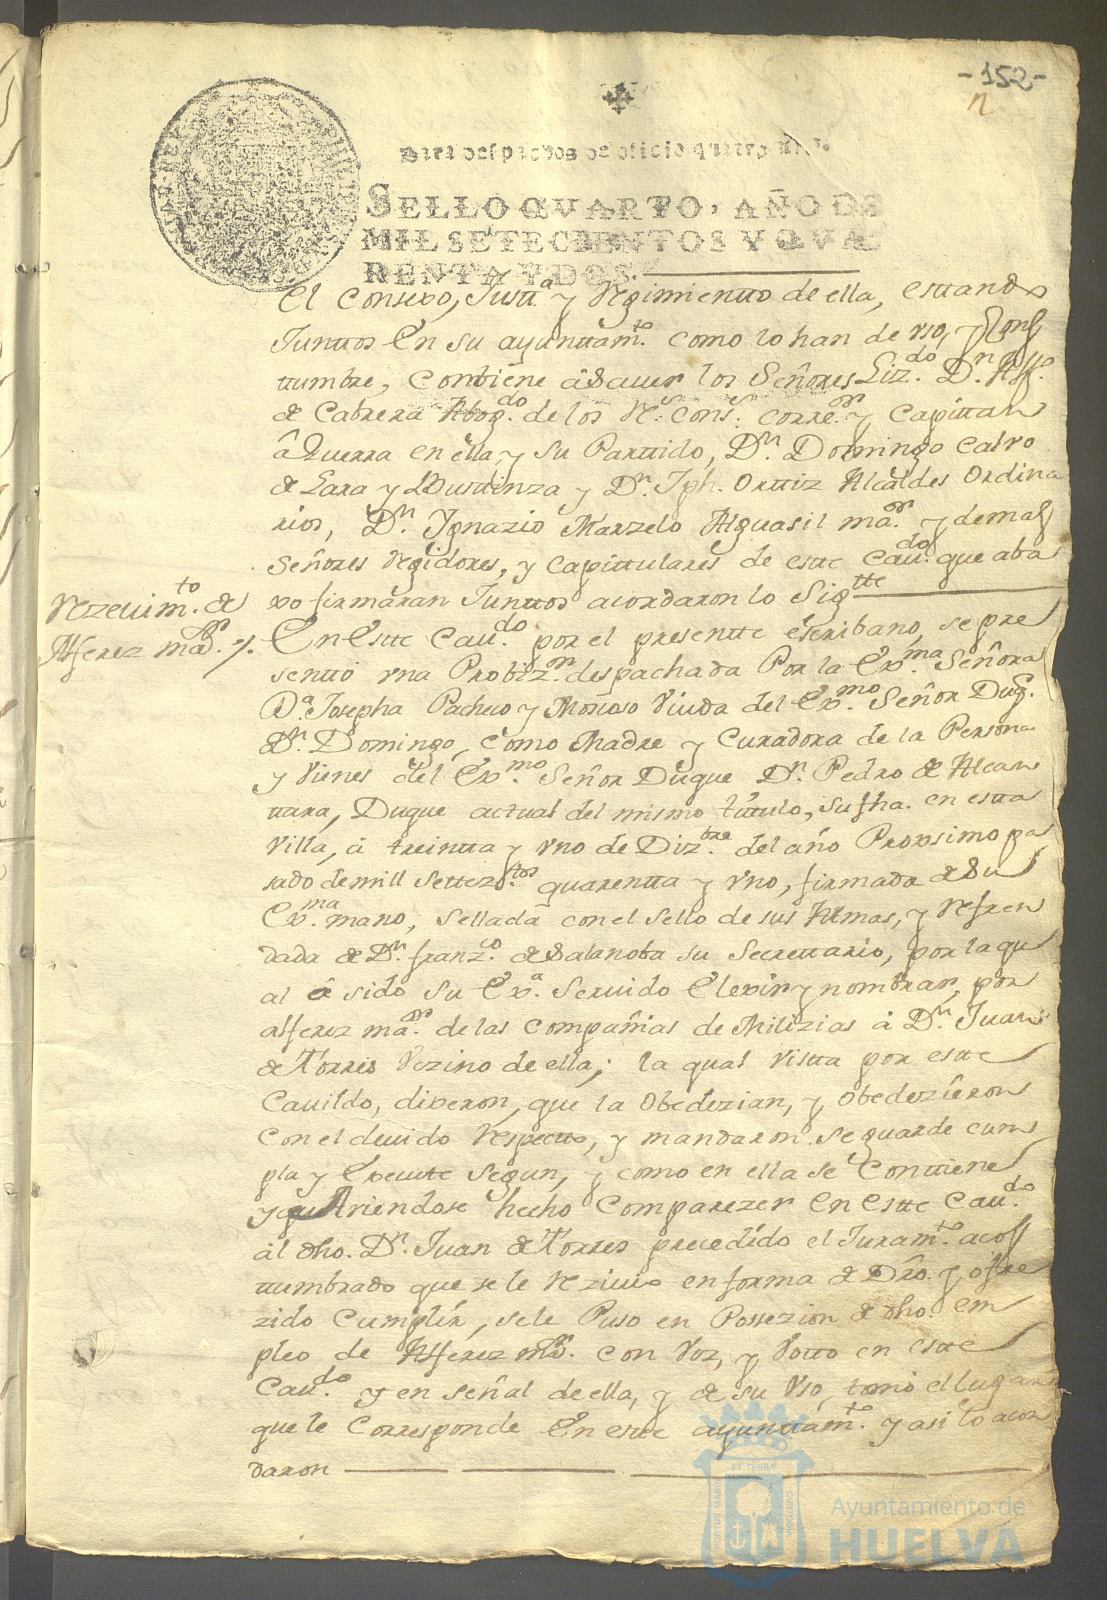 -152-
Para despachos de oficio quatro mrs.
SELLO QVARTO, AÑO DE
MIL SETECIENTOS Y QVA
RENTA Y DOS.
El Consexo, Justt.ª y Regimientto de ella, esttando
Junttos En su ayunttam.to como lo han de vso, y Cons
ttumbre, Combiene âsauer los Señores Liz.do D.n Alf.º
de Cabrera Abog.do de los R.s Cons.s corre.or y Capittan
â Guerra en ella y su Parttido, D.n Domingo Calvo
de Lara y Busttinza y D.n Jph. Orttiz Alcaldes Ordina
rios, D.n Ignazio Marzelo Alguasil ma.or y demas
Señores Regidores, y Capittulares de estte Cau.do que aba
xo firmaran Junttos acordaron lo Sig.tte
Rezeuim.to de
Alferez ma.or
En Estte Cau.do por el presentte escribano, se pre
senttó vna Probiz.on despachada Por la Ex.ma Señora
D.ª Josepha Pacheco y Moñoso Viuda del Ex.mo Señor Duq.
D.n Domingo, como Madre y Curadora de la Persona
y Vienes del Ex.mo Señor Duque D.n Pedro de Alcan
ttara, Duque actual del mismo títtulo, su fha. en estta
Villa, â treintta y vno de Diz.bre del año Proxsimo pa
sado de mill Settez.tos quarentta y vno, firmada de Su
Ex.ma mano, sellada con el sello de sus Armas, y Refren
dada de D.n franz.co de Salanoba su Secrettario, por la qu
al â sido su Ex.ª Seruido Elexir y nombrar, por
alferez ma.or de las Compañias de Milizias â D.n Juan
de Torres Vezino de ella; la qual vistta por estte
Cauildo, dixeron, que la Obedezian, y Obedezieron
con el deuido Respectto, y mandaron se guarde cum
pla y Execute Segun, y como en ella se Conttiene
y auiendose hecho Comparezer en estte Cau.do
âl dho. D.n Juan de Torres precedido el Juram.to acos
ttumbrado que se le Reziuio en forma de Dro. y ofre
zido Cumplir, se le Puso en Possezion de dho. em
pleo de Alferez ma.or con Voz, y Votto en estte
Cau.do y en señal de ella, y de su Vso, tomó el lugar
que le Corresponde En estte ayunttam.to y asi lo acor
daron
Ayuntamiento de
HUELVA